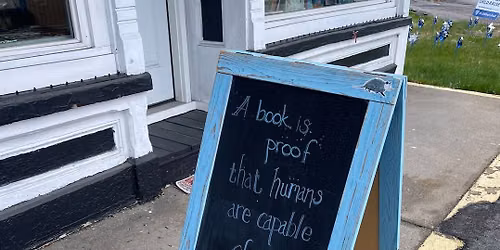 A book is
proof
that humans
are capable
of